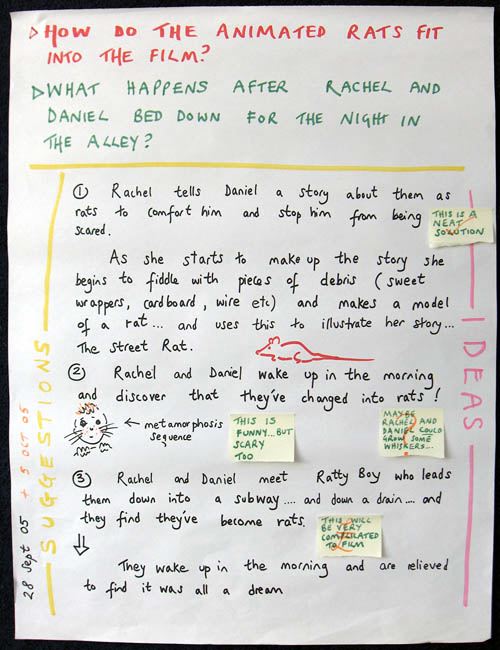 ▷HOW DO THE ANIMATED RATS FIT
INTO THE FILM?
▷WHAT HAPPENS AFTER RACHEL AND
DANIEL BED DOWN FOR THE NIGHT IN
THE ALLEY?
① Rachel tells Daniel a story about them as
rats to comfort him and stop him from being
scared.
THIS IS A
NEAT
SOLUTION
As she starts to make up the story she
begins to fiddle with pieces of debris (sweet
wrappers, cardboard, wire etc) and makes a model
of a rat... and uses this to illustrate her story...
The Street Rat.
② Rachel and Daniel wake up in the morning
and discover that they've changed into rats!
← metamorphosis
sequence
THIS IS
FUNNY...BUT
SCARY
TOO
MAYBE
RACHEL AND
DANIEL COULD
GROW SOME
WHISKERS...
③ Rachel and Daniel meet Ratty Boy who leads
them down into a subway.... and down a drain.... and
they find they've become rats.
THIS WILL
BE VERY
COMPLICATED
TO FILM
They wake up in the morning and are relieved
to find it was all a dream
SUGGESTIONS
IDEAS
28 Sept 05 + 5 OCT 05